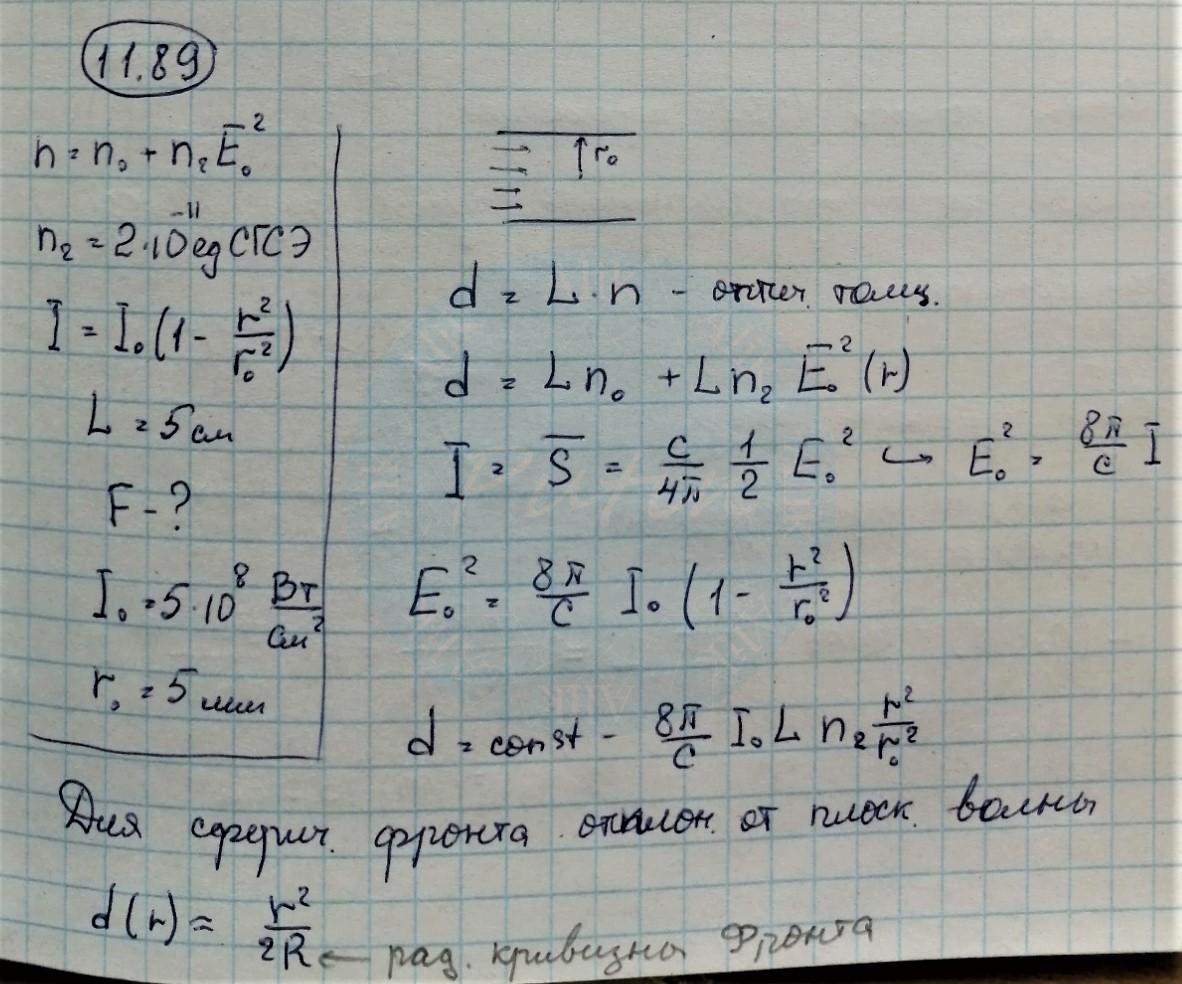 11.89
n = n₀ + n₂ E̅₀²
n₂ = 2·10⁻¹¹ ед СГСЭ
I = I₀ (1 - r²/r₀²)
L = 5 см
F - ?
I₀ = 5·10⁸ Вт/см²
r₀ = 5 мм
r₀
d = L·n - оптич. толщ.
d = L n₀ + L n₂ E̅₀² (r)
I = S̅ = c/4π 1/2 E₀² ↪ E₀² = 8π/c I
E₀² = 8π/c I₀ (1 - r²/r₀²)
d = const - 8π/c I₀ L n₂ r²/r₀²
Для сферич. фронта отклон. от плоск. волны
d(r) ≈ r²/2R ← рад. кривизны фронта